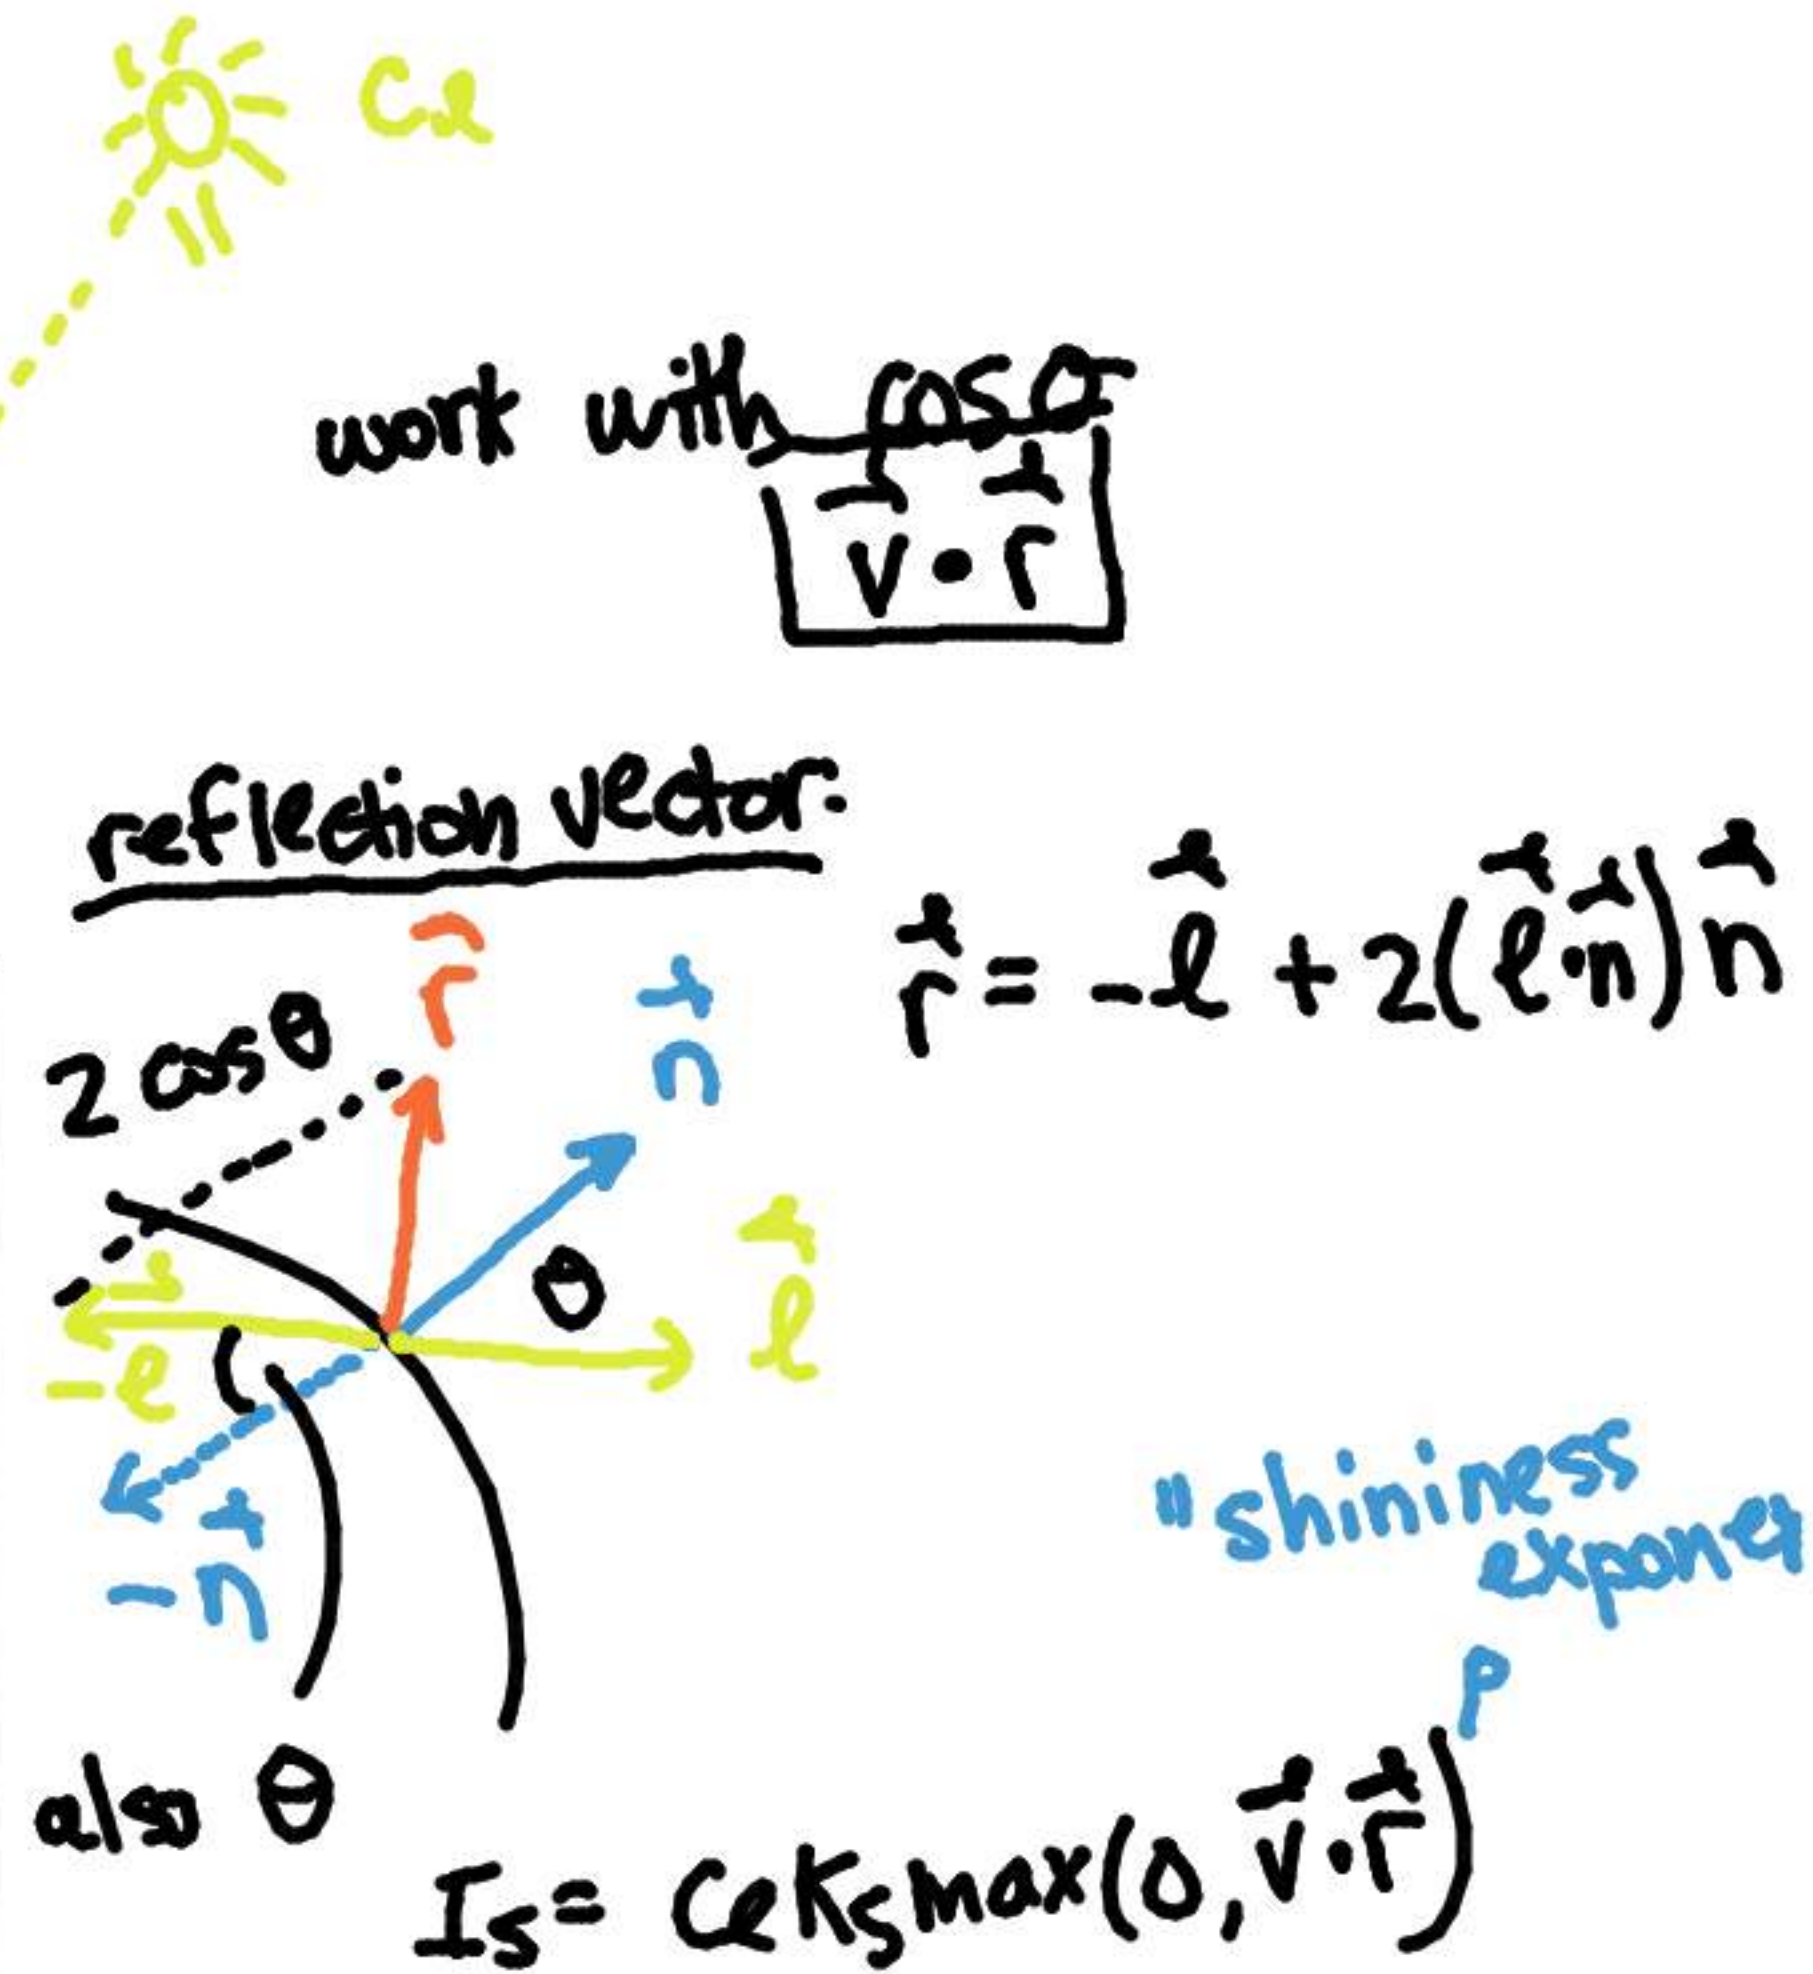 Cℓ
work with cos σ
v⃗ • r⃗
reflection vector:
r⃗ = -ℓ⃗ + 2(ℓ⃗·n⃗)n⃗
r⃗
n⃗
2 cos θ
θ
ℓ⃗
-ℓ⃗
-n⃗
"shininess
exponet
p
also θ
Is = Cℓ Ks max(0, v⃗·r⃗)